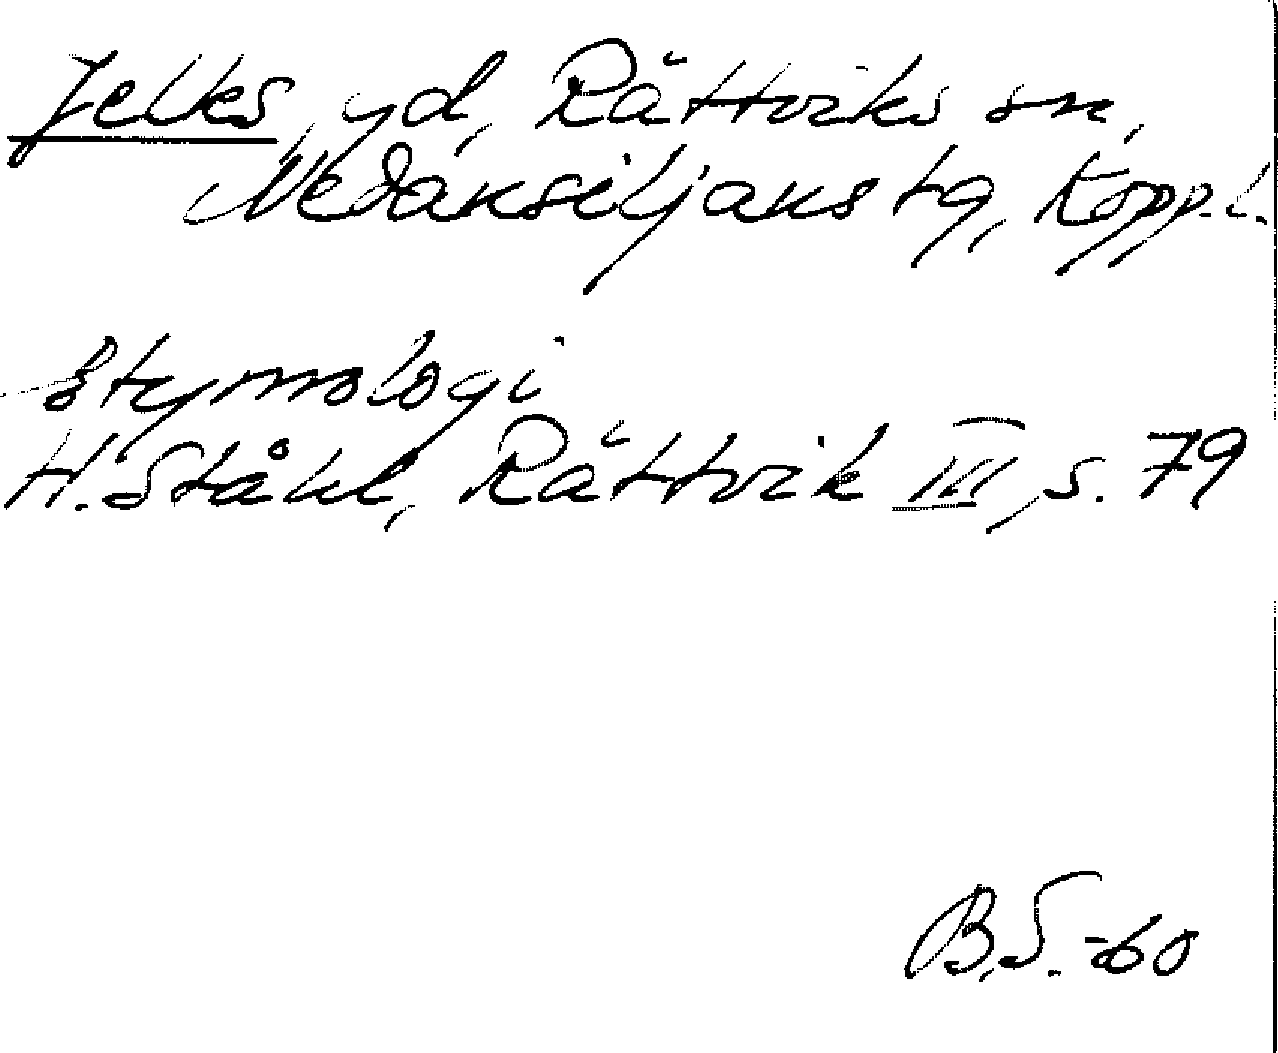 Jelkes, yd, Rättviks sn,
Nedansiljans tg, Kopp.l.
Etymologi
H. Ståhl, Rättvik III, s. 79
B.S. -60